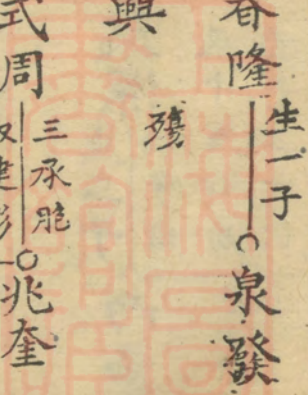 春隆
生一子
泉發
興
殤
式周
三承胞
兆奎